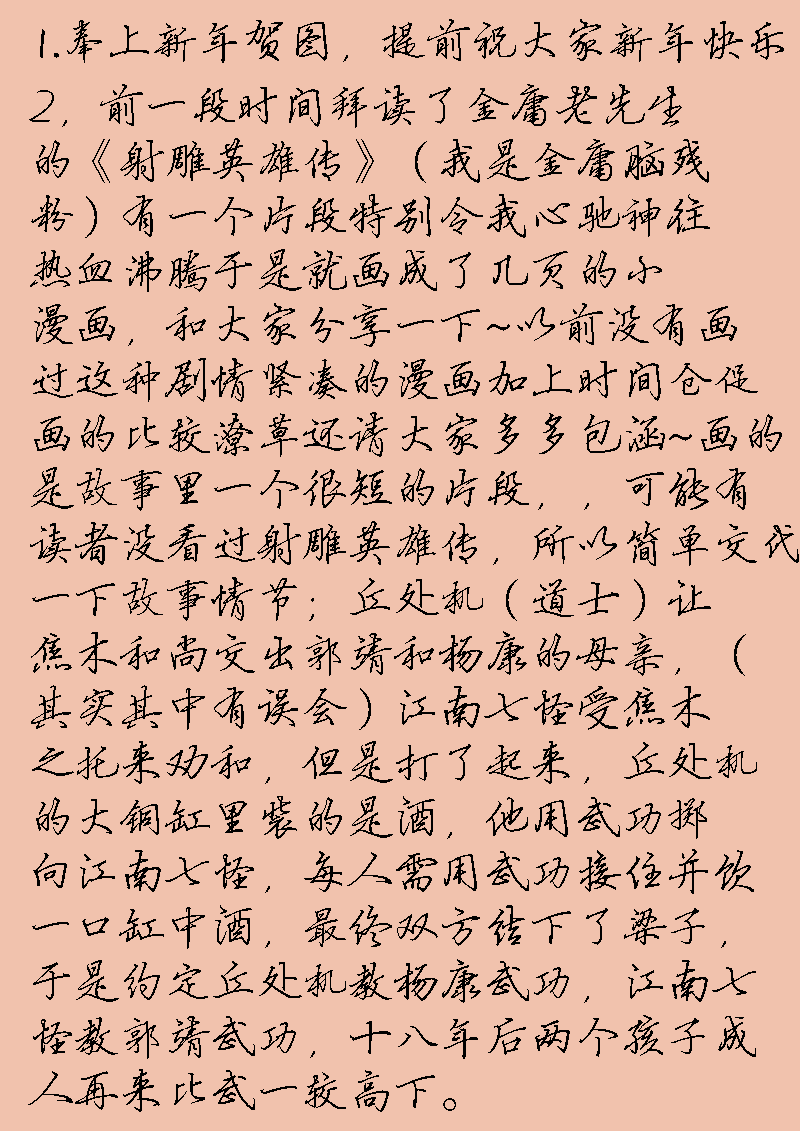 1.奉上新年贺图，提前祝大家新年快乐
2，前一段时间拜读了金庸老先生
的《射雕英雄传》（我是金庸脑残
粉）有一个片段特别令我心驰神往
热血沸腾于是就画成了几页的小
漫画，和大家分享一下~以前没有画
过这种剧情紧凑的漫画加上时间仓促
画的比较潦草还请大家多多包涵~画的
是故事里一个很短的片段，，可能有
读者没看过射雕英雄传，所以简单交代
一下故事情节；丘处机（道士）让
焦木和尚交出郭靖和杨康的母亲，（
其实其中有误会）江南七怪受焦木
之托来劝和，但是打了起来，丘处机
的大铜缸里装的是酒，他用武功掷
向江南七怪，每人需用武功接住并饮
一口缸中酒，最终双方结下了梁子，
于是约定丘处机教杨康武功，江南七
怪教郭靖武功，十八年后两个孩子成
人再来比武一较高下。